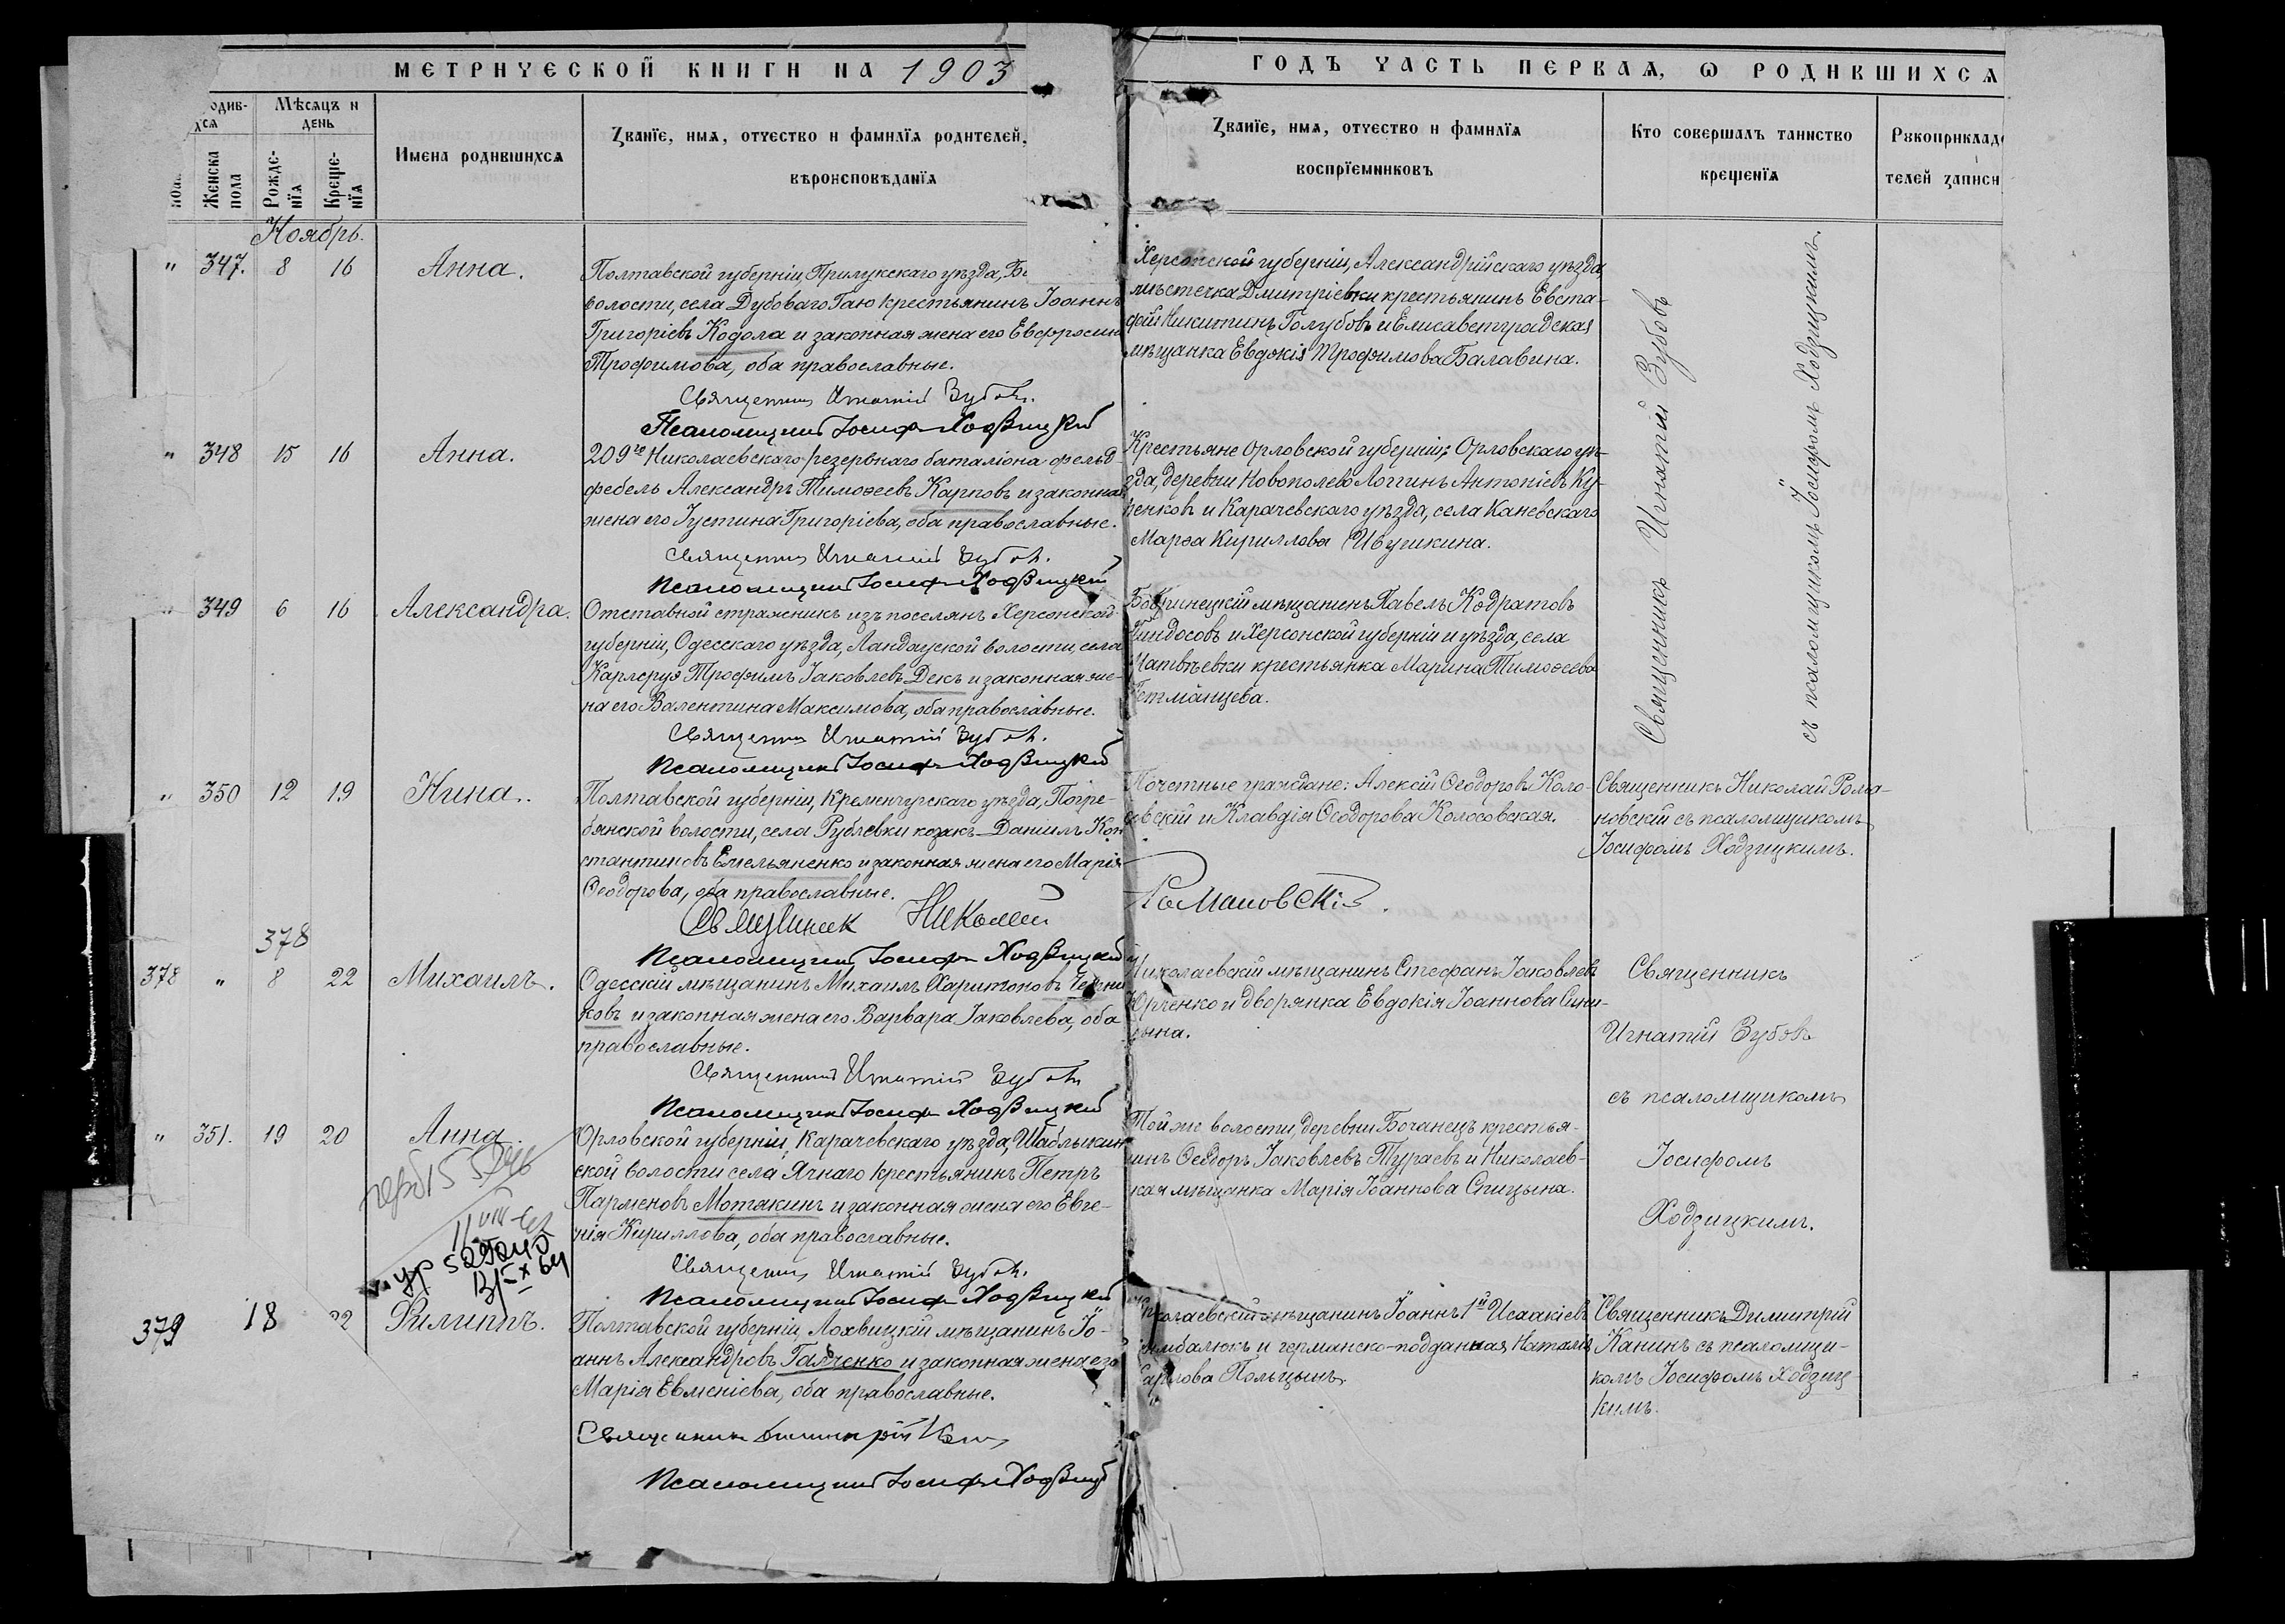 МЕТРИЧЕСКОЙ КНИГИ НА 1903
ГОДЪ ЧАСТЬ ПЕРВАЯ, Ѡ РОДИВШИХСЯ
Мѣсяцъ и день
Женска пола
Рожденїя
Крещенїя
Имена родившихся
Званїе, имя, отчество и фамилїя родителей,
вѣроисповѣданїя
Званїе, имя, отчество и фамилїя
воспрїемниковъ
Кто совершалъ таинство
крещенїя
Рукоприклад
телей записи
Ноябрь.
" 347. 8 16 Анна.
Полтавской губерніи, Прилукскаго уѣзда,
волости, села Дубоваго Гаю крестьянинъ Іоаннъ
Григоріевъ Кодола и законная жена его Евфросин
Трофимова, оба православные.
Священникъ Игнатій Зубовъ.
Псаломщикъ Іосифъ Ходзицкій
Херсонской губерніи, Александрійскаго уѣзда,
мѣстечка Дмитріевки крестьянинъ Евста-
фій Никитинъ Голубовъ и Елисаветградская
мѣщанка Евдокія Трофимова Балавина.
Священникъ Игнатій Зубовъ
съ псаломщикомъ Іосифомъ Ходзицкимъ.
" 348 15 16 Анна.
209го Николаевскаго резервнаго баталіона фельд-
фебель Александръ Тимоѳеевъ Карповъ и законная
жена его Іустина Григоріева, оба православные.
Священникъ Игнатій Зубовъ.
Псаломщикъ Іосифъ Ходзицкій
Крестьяне Орловской губерніи: Орловскаго уѣ-
зда, деревни Новополево Логгинъ Антоніевъ Ку-
ненковъ и Карачевскаго уѣзда, села Каневскаго
Марѳа Кириллова Ивушкина.
" 349 6 16 Александра.
Отставной стражникъ изъ поселянъ Херсонской
губерніи, Одесскаго уѣзда, Ландауской волости, села
Карлсруэ Трофимъ Іаковлевъ Декъ и законная же-
на его Валентина Максимова, оба православные.
Священникъ Игнатій Зубовъ.
Псаломщикъ Іосифъ Ходзицкій
Бобринецкій мѣщанинъ Павелъ Кодратовъ
Гиндосовъ и Херсонской губерніи и уѣзда, села
Матвѣевки крестьянка Марина Тимоѳеева
Гетманцева.
" 350 12 19 Нина.
Полтавской губерніи, Кременчугскаго уѣзда, Погре-
бянской волости, села Рублевки козакъ Даніилъ Кон
стантиновъ Емельяненко и законная жена его Марія
Ѳеодорова, оба православные.
Священник Николай Романовскій.
Псаломщикъ Іосифъ Ходзицкій
Почетные граждане: Алексій Ѳеодоровъ Коло-
совскій и Клавдія Ѳеодорова Колосовская.
Священникъ Николай Рома-
новскій съ псаломщикомъ
Іосифомъ Ходзицкимъ.
378
378 " 8 22 Михаилъ.
Одесскій мѣщанинъ Михаилъ Харитоновъ
ковъ и законная жена его Варвара Іаковлева, оба
православные.
Священникъ Игнатій Зубовъ
Псаломщикъ Іосифъ Ходзицкій
Николаевскій мѣщанинъ Стефанъ Іаковлевъ
Юрченко и дворянка Евдокія Іоаннова Сини-
цына.
Священникъ
Игнатій Зубовъ
съ псаломщикомъ
Іосифомъ
Ходзицкимъ.
" 351. 19 20 Анна.
Орловской губерніи, Карачевскаго уѣзда, Шаблыкин
ской волости села Ячнаго крестьянинъ Петръ
Парменовъ Мотякинъ и законная жена его Евге-
нія Кириллова, оба православные.
Священникъ Игнатій Зубовъ.
Псаломщикъ Іосифъ Ходзицкій
Той же волости, деревни Бочанецъ крестья-
нинъ Ѳеодоръ Іаковлевъ Тураевъ и Николаев-
кая мѣщанка Марія Іоаннова Спицына.
379 18 22 Филиппъ.
Полтавской губерніи, Лохвицкій мѣщанинъ Іо-
аннъ Александровъ Галченко и законная жена его
Марія Евменіева, оба православные.
Священникъ Димитрій Канинъ
Псаломщикъ Іосифъ Ходзицкій
Николаевскій мѣщанинъ Іоаннъ 1й Исаакіевъ
Цимбалюкъ и германско-подданная Наталія
Карлова Польцынъ.
Священникъ Димитрій
Канинъ съ псаломщи-
комъ Іосифомъ Ходзиц-
кимъ.